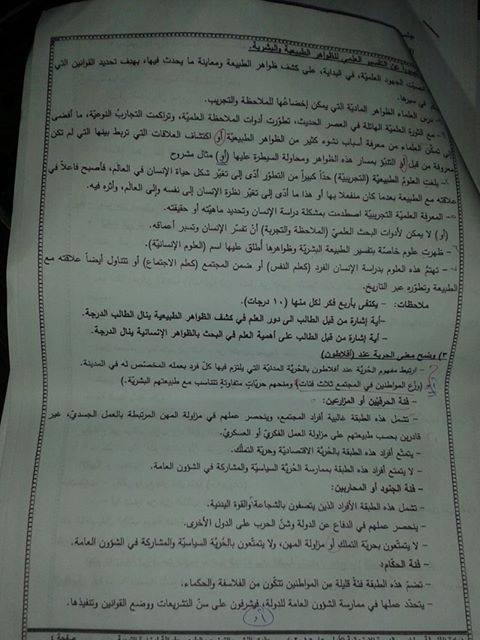 عن التفسير العلمي للظواهر الطبيعية والبشرية.
الجهود العلميّة، في البداية، على كشف ظواهر الطبيعة ومعاينة ما يحدث فيها، بهدف تحديد القوانين التي
في سيرها.
درس العلماء الظواهر الماديّة التي يمكن إخضاعها للملاحظة والتجريب.
- مع الثورة العلميّة الهائلة في العصر الحديث، تطوّرت أدوات الملاحظة العلميّة، وتراكمت التجارب النوعيّة، ما أفضى
تمكّن العلماء من معرفة أسباب نشوء كثير من الظواهر الطبيعيّة (أو) اكتشاف العلاقات التي تربط بينها التي لم تكن
معروفة من قبل (أو) التنبّؤ بمسار هذه الظواهر ومحاولة السيطرة عليها (أو) مثال مشروح
- بلغت العلوم الطبيعيّة (التجريبيّة) حدّاً كبيراً من التطوّر أدّى إلى تغيّر شكل حياة الإنسان في العالم، فأصبح فاعلاً في
علاقته مع الطبيعة بعدما كان منفعلا بها أو هذا ما أدّى إلى تغيّر نظرة الإنسان إلى نفسه وإلى العالم، وأثره فيه.
- المعرفة العلميّة التجريبيّة اصطدمت بمشكلة دراسة الإنسان وتحديد ماهيّته أو حقيقته.
(أو) لا يمكن لأدوات البحث العلميّ (الملاحظة والتجربة) أنْ تفسّر الإنسان وتسبر أعماقه.
- ظهرت علوم خاصّة بتفسير الطبيعة البشريّة وظواهرها أُطلق عليها اسم (العلوم الإنسانيّة).
- تهتمّ هذه العلوم بدراسة الإنسان الفرد (كعلم النفس) أو ضمن المجتمع (كعلم الاجتماع) أو تتناول أيضاً علاقته مع
الطبيعة وتطوّره عبر التاريخ.
ملاحظات: - يكتفى بأربع فكر لكل منها (١٠ درجات).
- أية إشارة من قبل الطالب إلى دور العلم في كشف الظواهر الطبيعية ينال الطالب الدرجة.
- أية إشارة من قبل الطالب على أهمية العلم في البحث بالظواهر الإنسانية ينال الدرجة.
٣) وضح معنى الحرية عند (أفلاطون)
- ارتبط مفهوم الحرّيّة عند أفلاطون بالحرّيّة المدنيّة التي يلتزم فيها كلّ فرد بعمله المخصّص له في المدينة.
(وزّع المواطنين في المجتمع ثلاث فئات) ومنحهم حريّات متفاوتة تتناسب مع طبيعتهم البشريّة.)
- فئة الحرفيّين أو المزارعين:
- تشمل هذه الطبقة غالبية أفراد المجتمع، وينحصر عملهم في مزاولة المهن المرتبطة بالعمل الجسديّ، غير
قادرين بحسب طبيعتهم على مزاولة العمل الفكريّ أو العسكريّ.
- يتمتّع أفراد هذه الطبقة بالحرّيّة الاقتصاديّة وحريّة التملّك.
- لا يتمتع أفراد هذه الطبقة بممارسة الحرّيّة السياسيّة والمشاركة في الشؤون العامة.
- فئة الجنود أو المحاربين:
- تشمل هذه الطبقة الأفراد الذين يتصفون بالشجاعة والقوة البدنية.
- ينحصر عملهم في الدفاع عن الدولة وشنّ الحرب على الدول الأخرى.
- لا يتمتّعون بحرية التملك أو مزاولة المهن، ولا يتمتّعون بالحُرّيّة السياسيّة والمشاركة في الشؤون العامة.
- فئة الحكّام:
- تضمّ هذه الطبقة فئة قليلة من المواطنين تتكّون من الفلاسفة والحكماء.
- يتحدّد عملها في ممارسة الشؤون العامة للدولة، فيشرفون على سنّ التشريعات ووضع القوانين وتنفيذها.